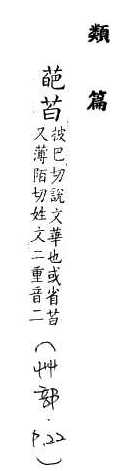 類篇
葩苩
彼巴切說文華也或省苩
又薄陌切姓文二重音二
(艸部.P.22)